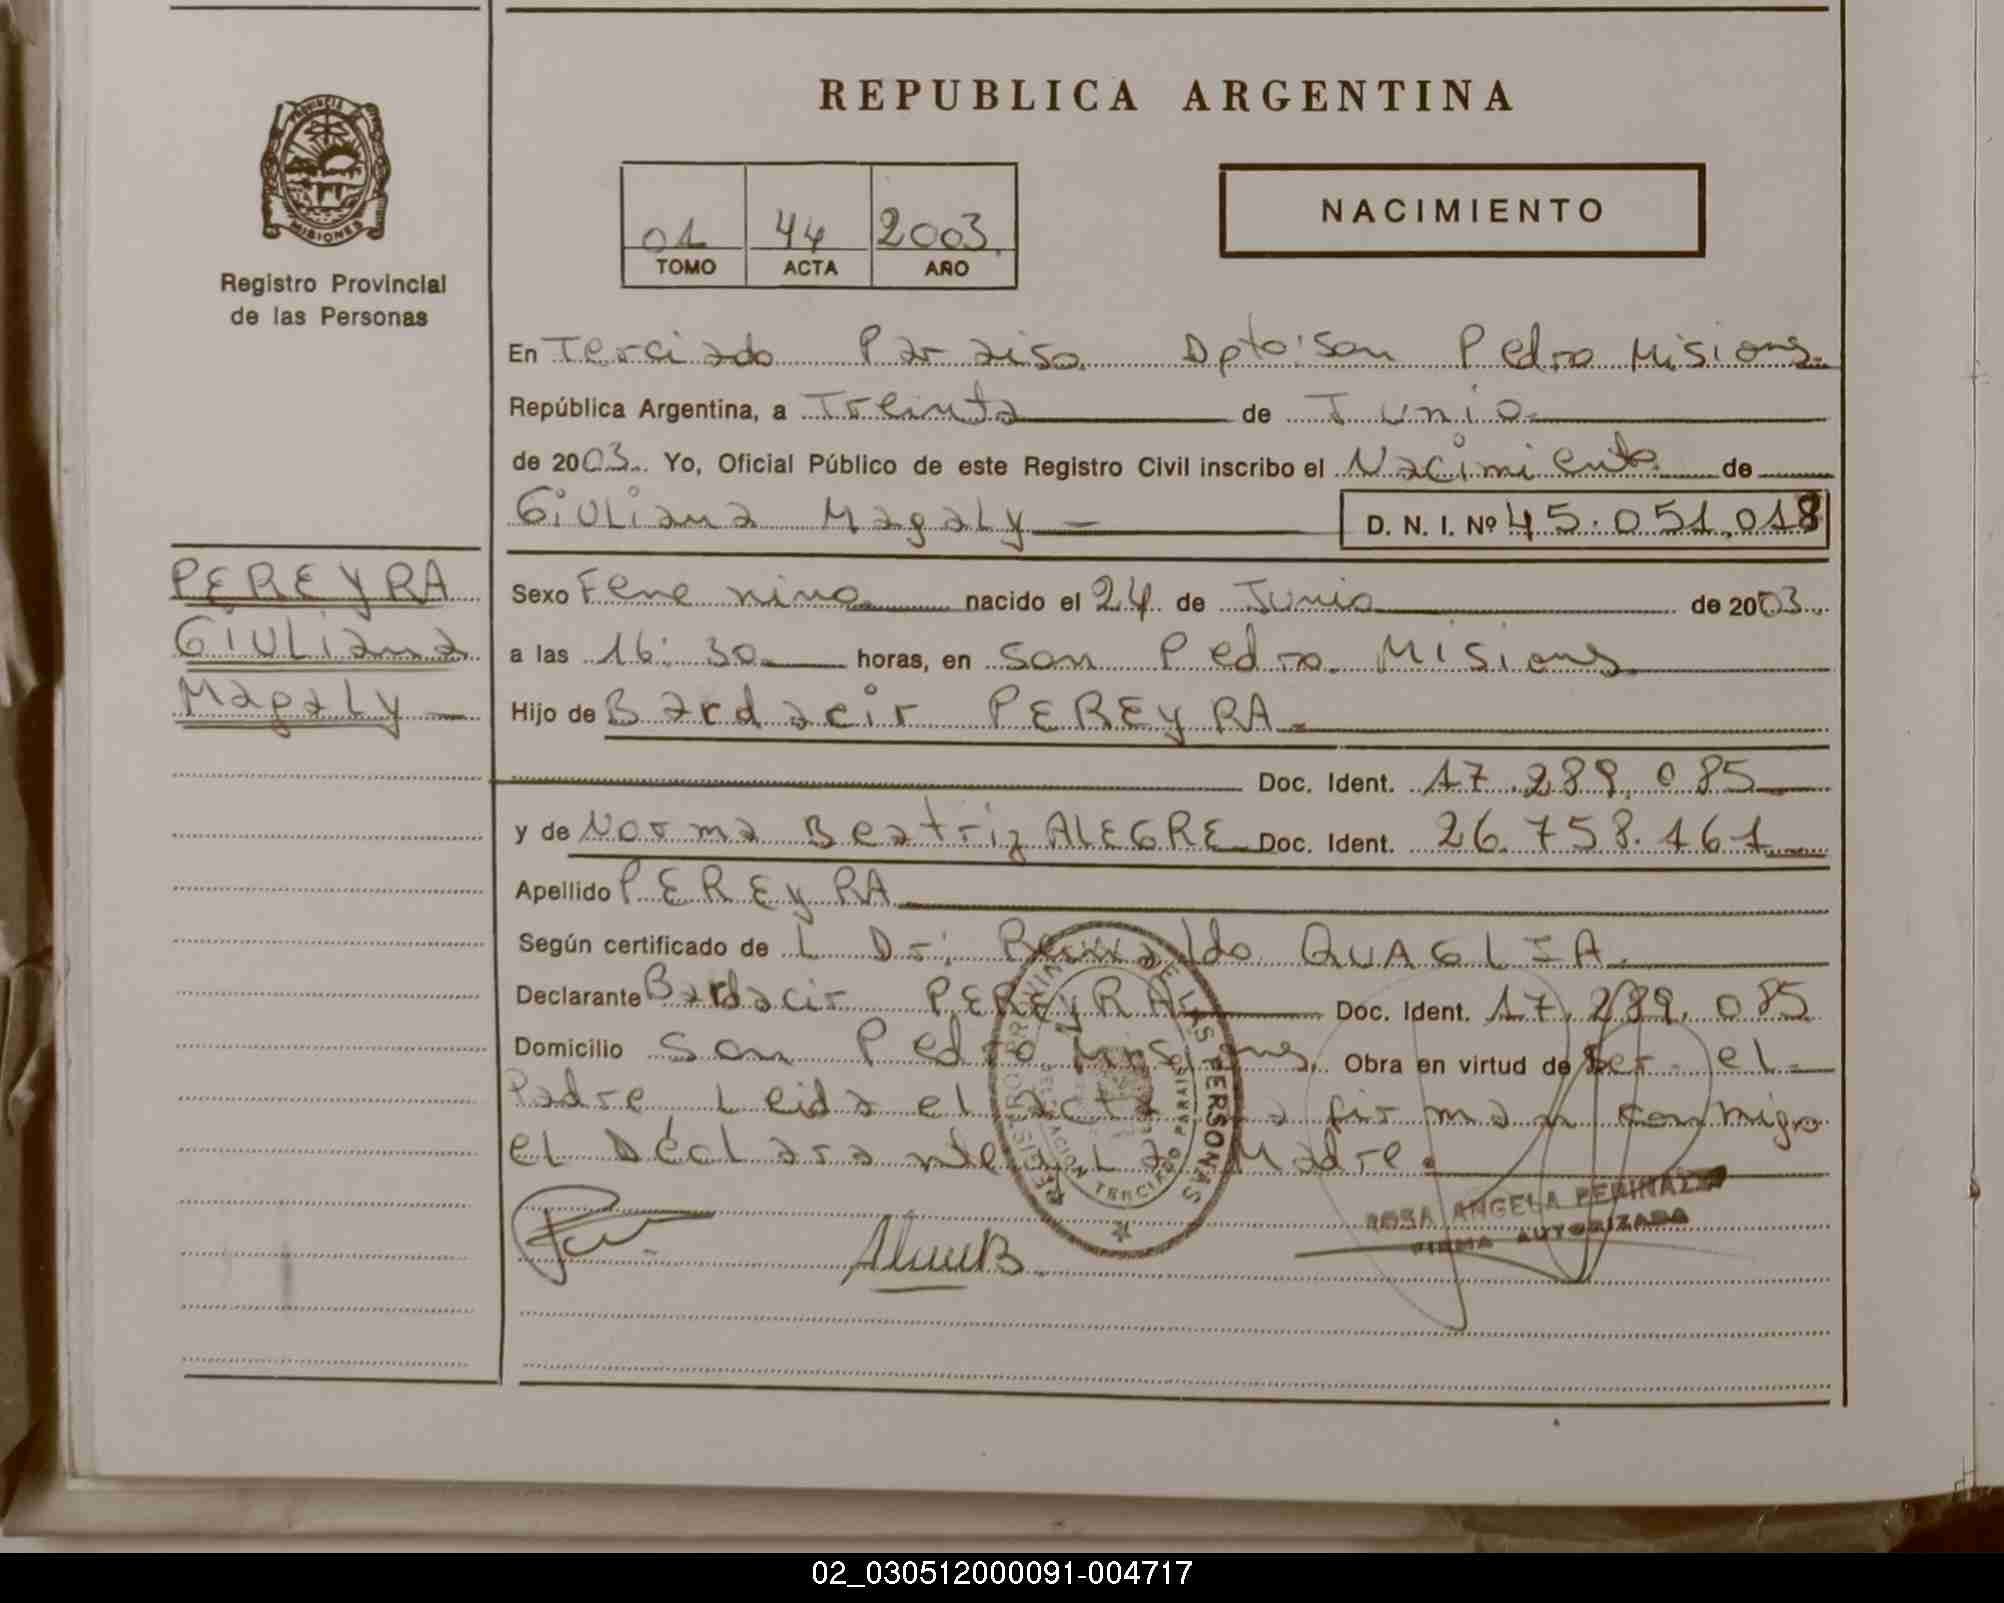 REPUBLICA ARGENTINA
PROVINCIA DE
MISIONES
Registro Provincial
de las Personas
01 44 2003
TOMO ACTA AÑO
NACIMIENTO
En Terciado Paraiso. Dpto: San Pedro Misiones.
República Argentina, a Treinta de Junio.
de 2003. Yo, Oficial Público de este Registro Civil inscribo el Nacimiento de
Giuliana Magaly D. N. I. Nº 45.051.018
PEREYRA
Giuliana
Magaly
Sexo Femenino nacido el 24 de Junio de 2003.
a las 16:30 horas, en San Pedro. Misiones
Hijo de Bardacir PEREYRA.
Doc. Ident. 17.289.085
y de Norma Beatriz ALEGRE Doc. Ident. 26.758.161
Apellido PEREYRA
Según certificado de L Dr: Reinaldo QUAGLIA.
Declarante Bardacir PEREYRA Doc. Ident. 17.289.085
Domicilio San Pedro Misiones. Obra en virtud de Ser el
Padre, Leida el acta la firman conmigo
el Declarante y La Madre.
REGISTRO PROVINCIAL DE LAS PERSONAS
DELEGACION TERCIADO PARAISO
ROSA ANGELA
FIRMA AUTORIZADA
02_030512000091-004717